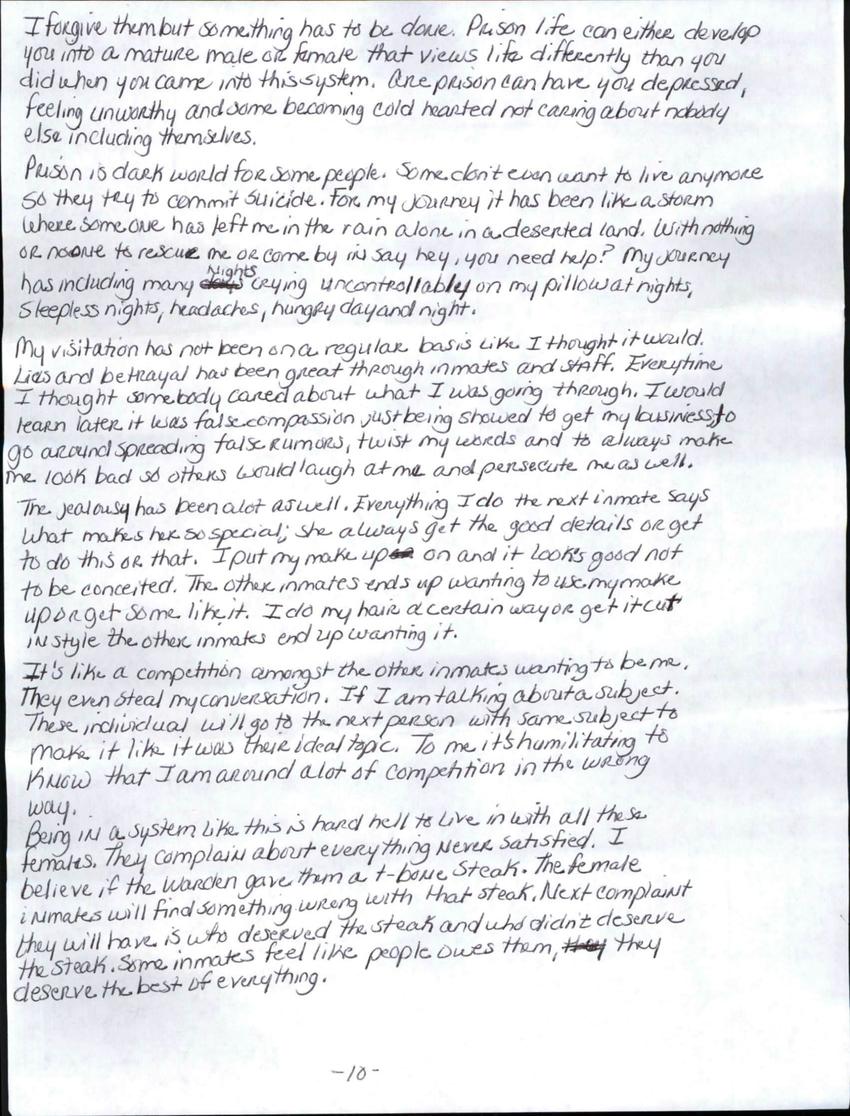 I forgive them but something has to be done. Prison life can either develop
you into a mature male or female that views life differently than you
did when you came into this system. One prison can have you depressed,
feeling unworthy and some becoming cold hearted not caring about nobody
else including themselves.
Prison is dark world for some people. Some don't even want to live anymore
so they try to commit suicide. For my journey it has been like a storm
where someone has left me in the rain alone in a deserted land. With nothing
or noone to rescue me or come by in say hey, you need help? My journey
has including many Nights crying uncontrollably on my pillow at nights,
Sleepless nights, headaches, hungry day and night.
My visitation has not been on a regular basis like I thought it would.
Lies and betrayal has been great through inmates and staff. Everytime
I thought somebody cared about what I was going through. I would
learn later it was false compassion just being showed to get my business to
go around spreading false rumors, twist my words and to always make
me look bad so others would laugh at me and persecute me as well.
The jealousy has been alot as well. Everything I do the next inmate says
what makes her so special; she always get the good details or get
to do this or that. I put my make up on and it looks good not
to be conceited. The other inmates ends up wanting to use my make
up or get some like it. I do my hair a certain way or get it cut
in style the other inmates end up wanting it.
It's like a competition amongst the other inmates wanting to be me.
They even steal my conversation. If I am talking about a subject.
These individual will go to the next person with same subject to
make it like it was their ideal topic. To me it's humilitating to
know that I am around alot of competition in the wrong
way.
Being in a system like this is hard hell to live in with all these
females. They complain about everything never satisfied. I
believe if the warden gave them a t-bone steak. The female
inmates will find something wrong with that steak. Next complaint
they will have is who deserved the steak and who didn't deserve
the steak. Some inmates feel like people owes them, they
deserve the best of everything.
-10-